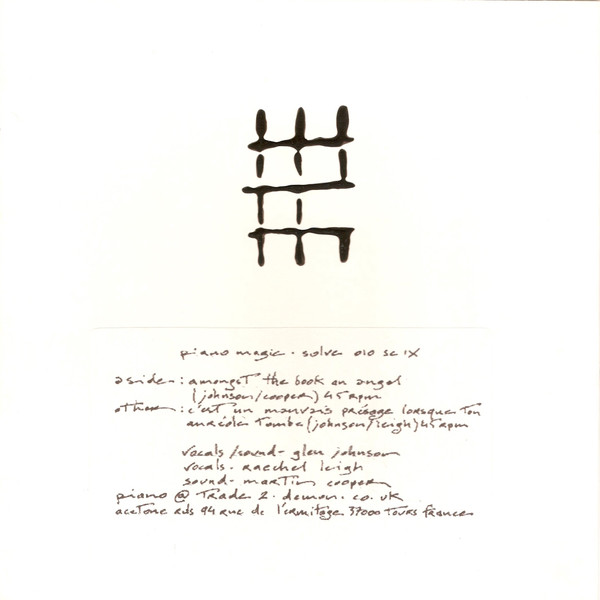 piano magic . solve 010 sc IX
a side : amongst the book an angel
(johnson/cooper) 45 rpm
other : c'est un mauvais présage lorsque ton
auréole tombe (johnson/leigh) 45 rpm
vocals/sound - glen johnson
vocals . raechel leigh
sound - martin cooper
piano @ trade 2 . demon . co . uk
acetone rds 94 rue de l'ermitage 37000 tours france